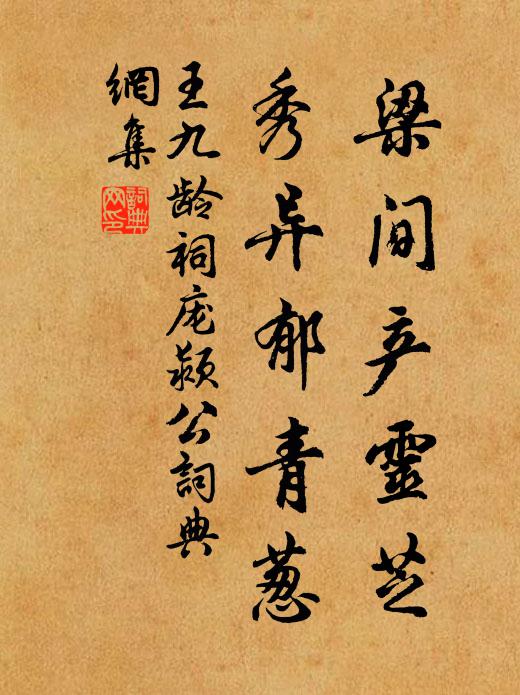 梁间产灵芝
秀异郁青葱
王九龄祠庞颍公詞典
網集
詞典网印